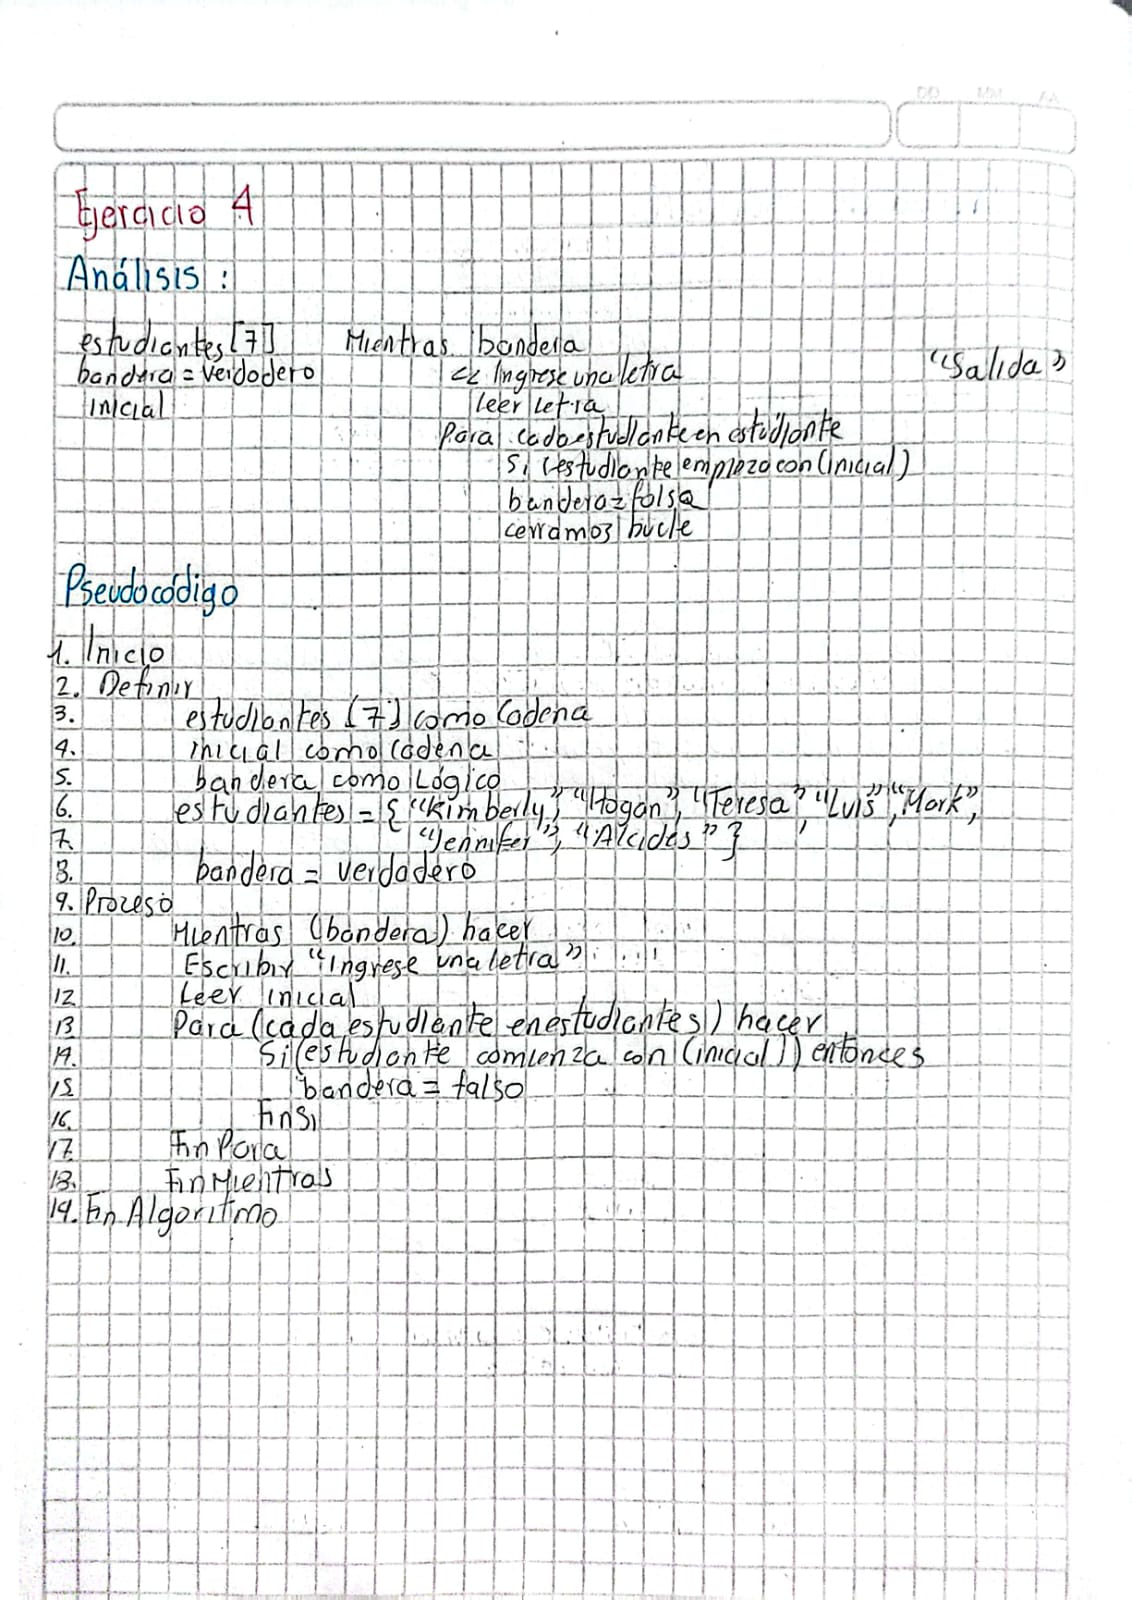 DD MM AA
Ejercicio 4
Análisis :
estudiantes [7]
bandera = verdadero
inicial
Mientras bandera
<< Ingrese una letra
leer letra
Para cada estudiante en estudiante
Si (estudiante empieza con (inicial)
bandera = falsa
cerramos bucle
"Salida"
Pseudocódigo
1. Inicio
2. Definir
3. estudiantes [7] como Cadena
4. inicial como cadena
5. bandera como Lógico
6. estudiantes = {"Kimberly", "Hogan", "Teresa", "Luis", "Mark",
7. "Jennifer", "Alcides"}
8. bandera = verdadero
9. Proceso
10. Mientras (bandera) hacer
11. Escribir "Ingrese una letra"
12 Leer inicial
13 Para (cada estudiante en estudiantes) hacer
14. Si (estudiante comienza con (inicial)) entonces
15 bandera = falso
16. FinSi
17. Fin Para
18. Fin Mientras
19. Fin Algoritmo